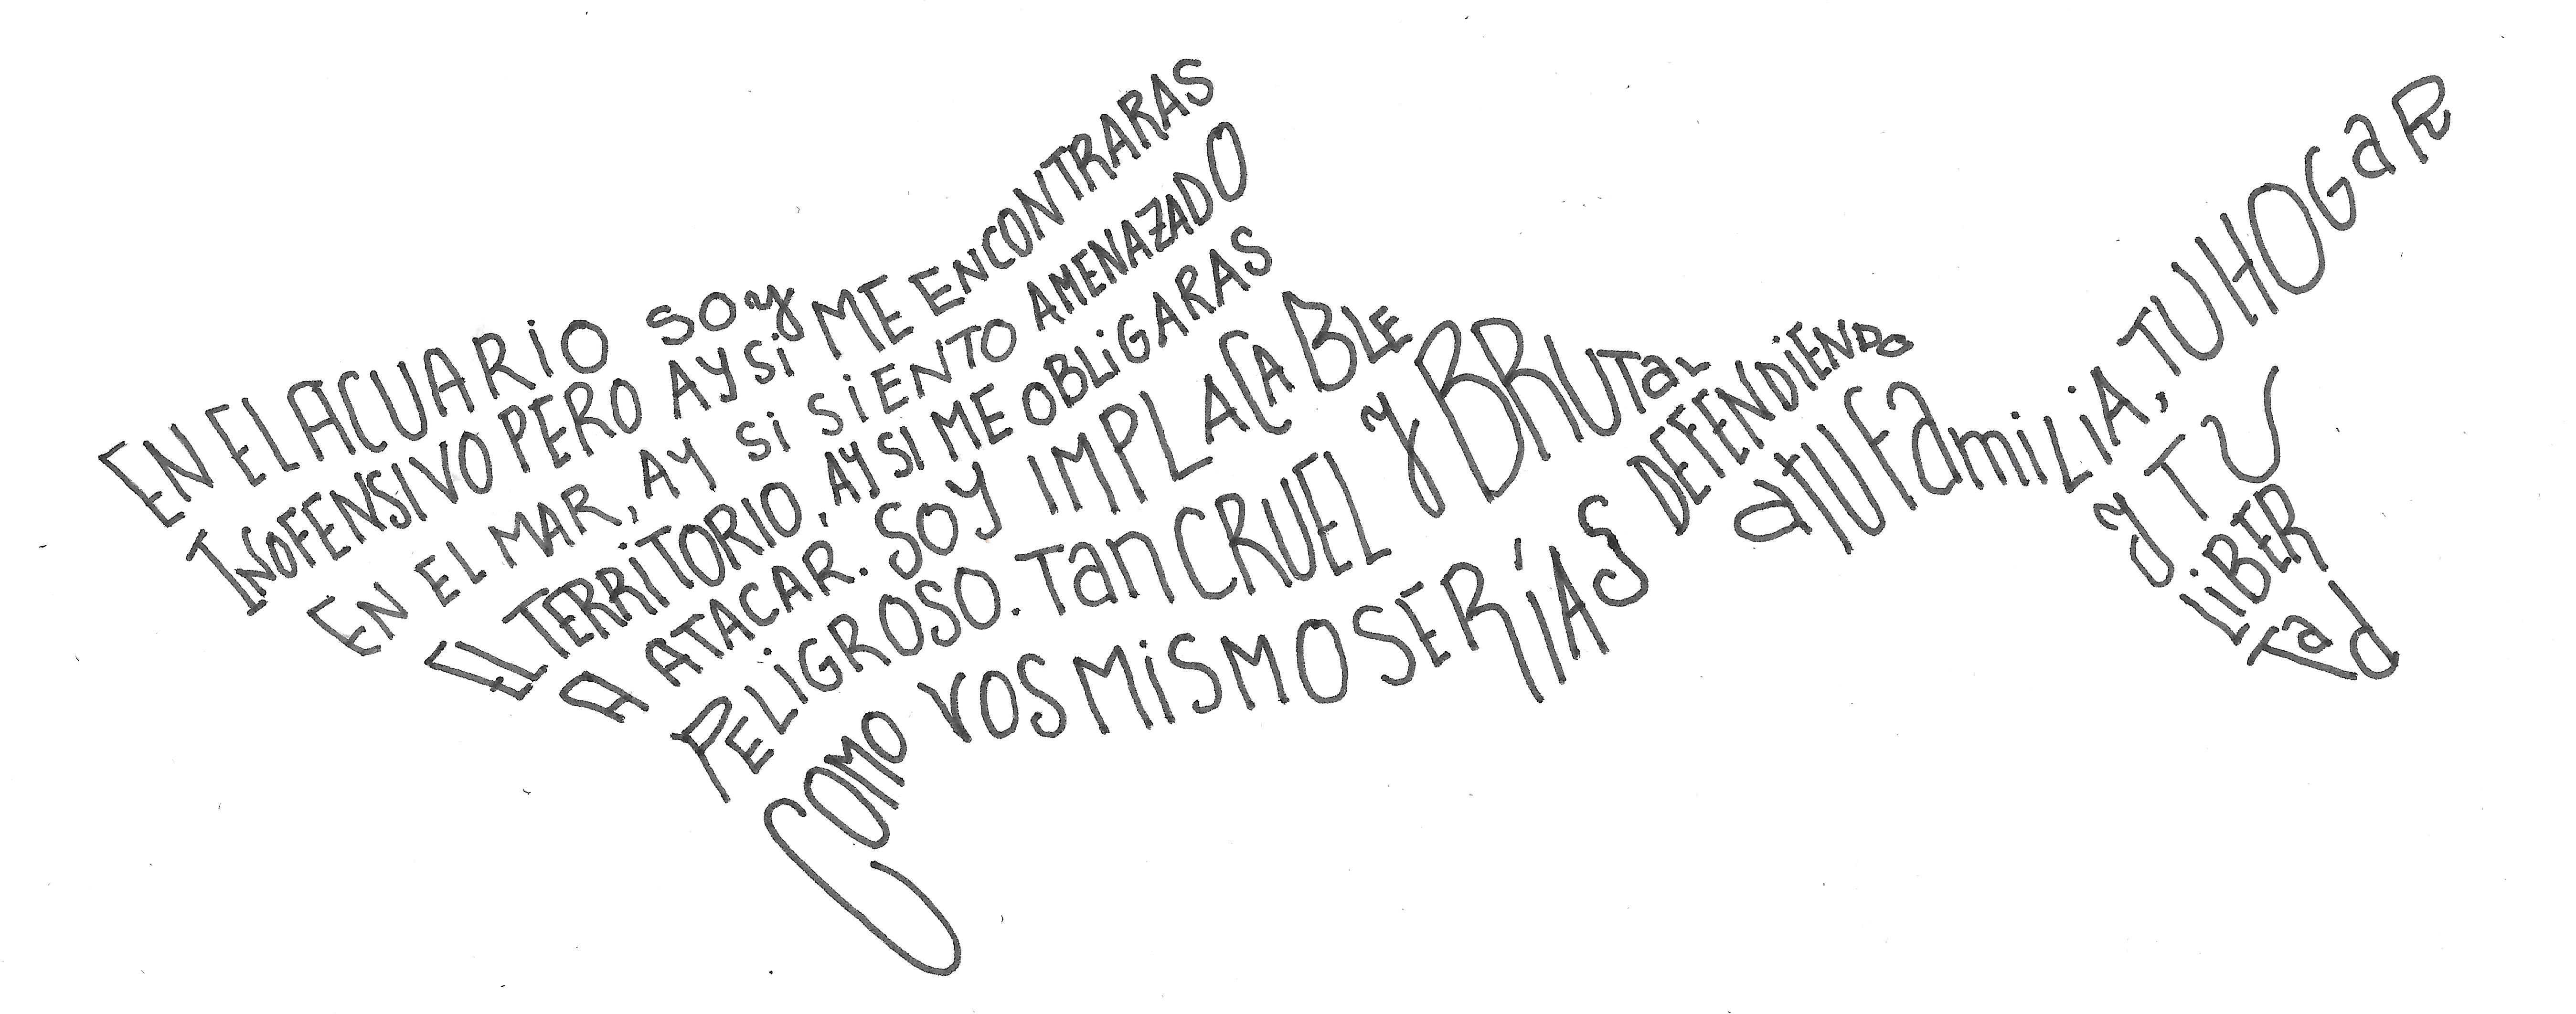 EN EL ACUARiO SOy
INOFENSIVO PERO AY Si ME ENCONTRARAS
EN EL MAR, AY Si SiENTO AMENAZADO
EL TERRiTORIO, AY SI ME OBLiGARAS
A ATACAR. SOY IMPLACABLE
PELiGROSO. Tan CRUEL y BRUTaL
COMO VOS MiSMO SERÍAS DEFENDiENDO
a TU FamiLiA, TU HOGaR
y TU
LiBER
Tad